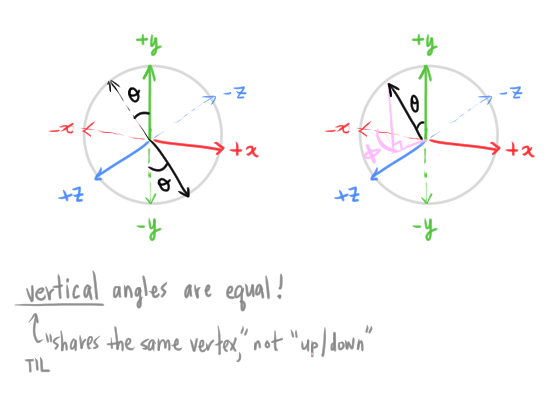 +y
+y
-z
-z
θ
θ
-x
-x
+x
+x
ϕ
θ
+z
+z
-y
-y
vertical angles are equal!
"shares the same vertex," not "up/down"
TIL